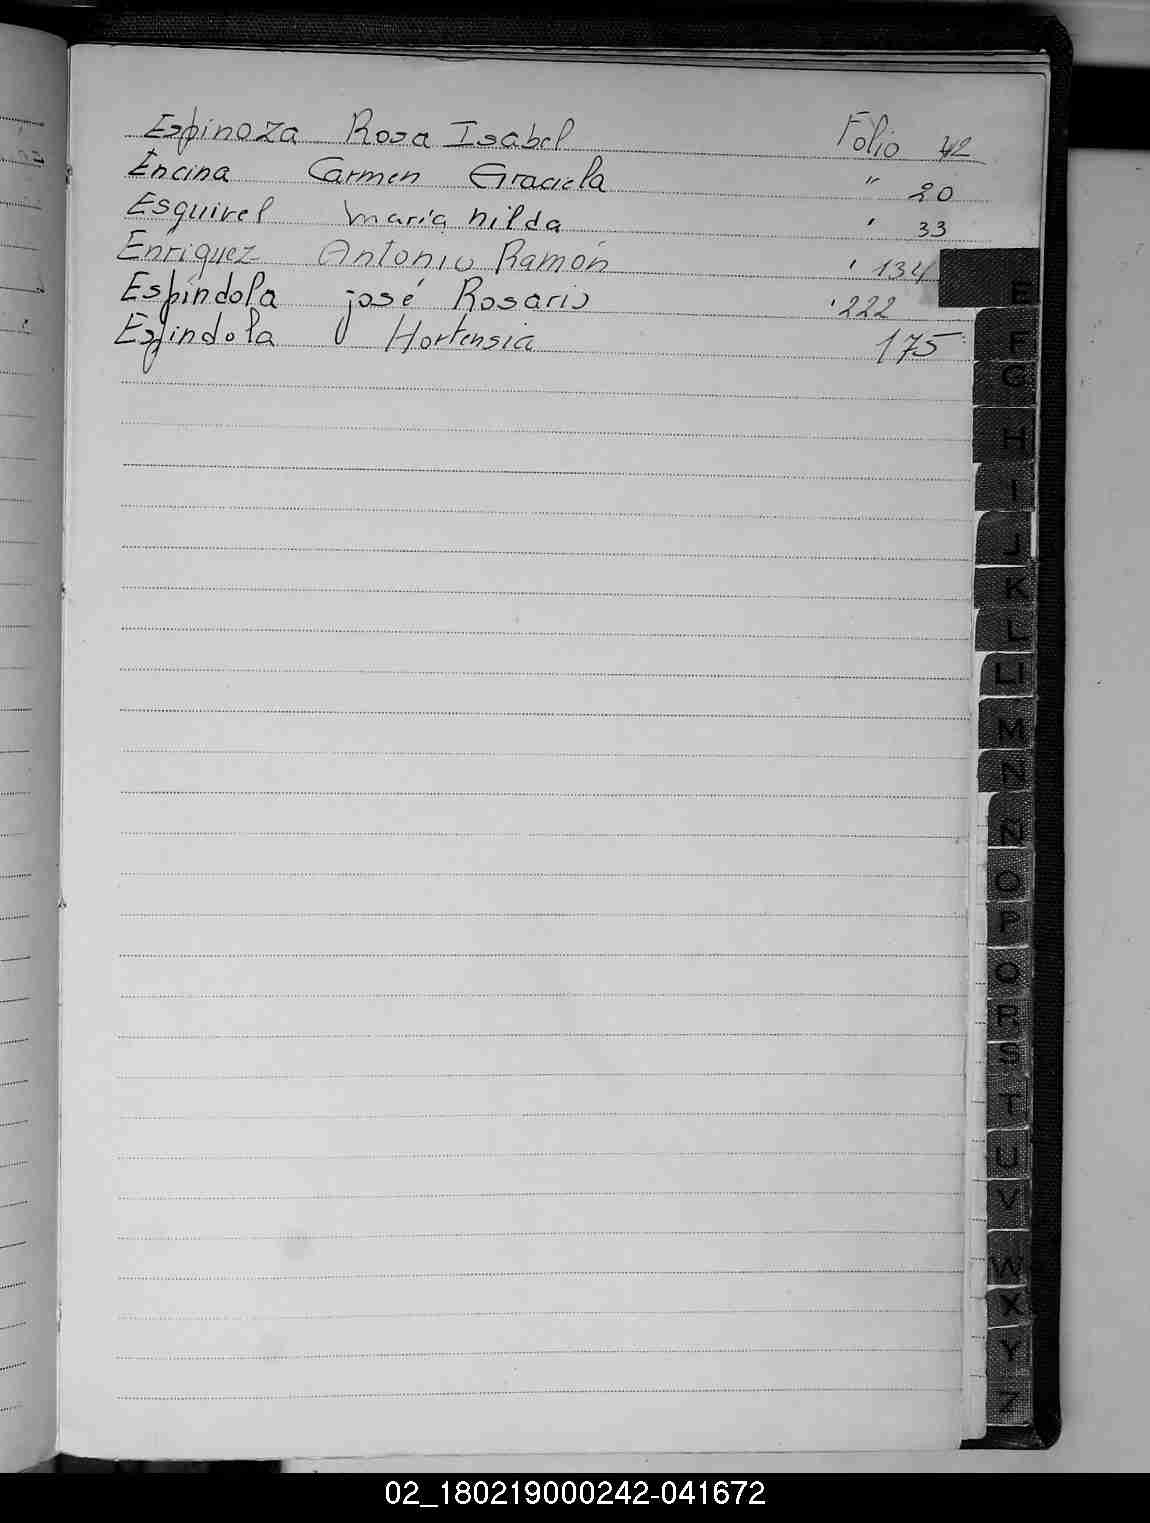 Espinoza Rosa Isabel Folio 42
Encina Carmen Graciela " 20
Esquivel María hilda ' 33
Enriquez Antonio Ramón ' 134
Espíndola josé Rosario ' 222
Espindola Hortensia 175
E
F
G
H
I
J
K
L
LI
M
N
N
O
P
Q
R
S
T
U
V
W
X
Y
Z
02_180219000242-041672